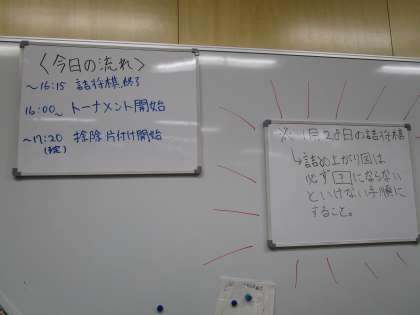 〈今日の流れ〉
～16:15 詰将棋終了
16:00～ トーナメント開始
～17:20 掃除片付け開始
(予定)
※1月28日の詰将棋
↳詰め上がり図は
必ず 2 にならない
といけない手順に
すること。